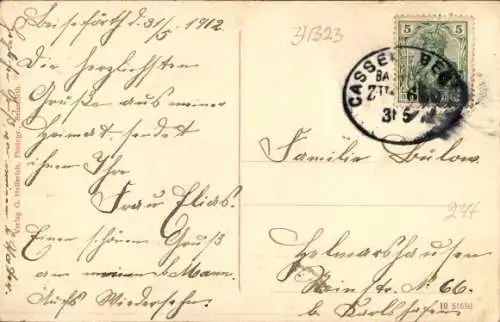 Beiseförth d. 31/5. 1912.
Die herzlichsten
Grüße aus meiner
Heimat sendet
ihnen Ihr
Frau Elias.
Einen schönen Gruß
an meinen l. Mann.
Aufs Wiedersehn.
Verlag O. Hellerich, Photogr.
31323
5
CASSEL BEBRA
BAHNPOST
31 5 12
Familie Bülow.
Helmarshausen
Steinstr. No 66.
b. Karlshafen
274
IB 51650